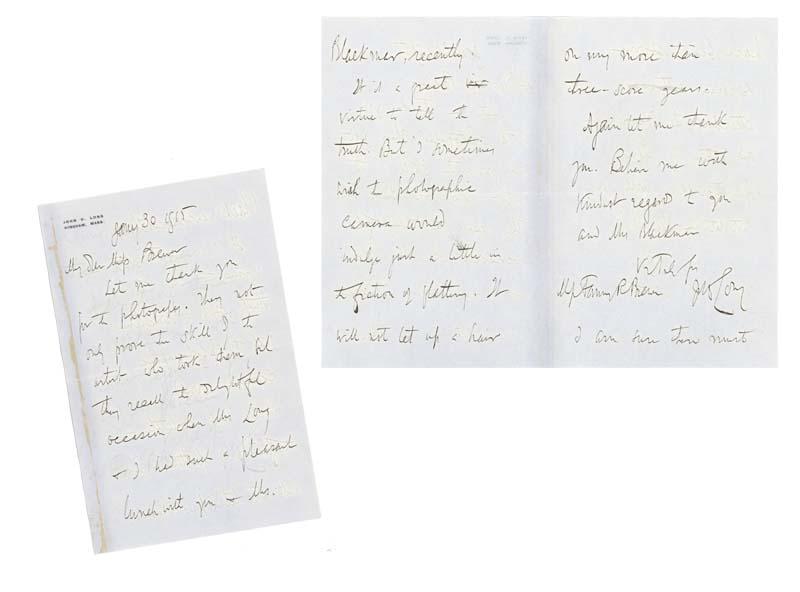 JOHN D. LONG
HINGHAM, MASS.
Jany 30 1915
My Dear Miss Brown
Let me thank you
for the photographs. They not
only prove the skill of the
artist who took them but
they recall the delightful
occasion when Mrs Long
& I had such a pleasant
lunch with you & Mrs.
Blackmer, recently.
It is a great
virtue to tell the
truth. But I sometimes
wish the photographic
camera would
indulge just a little in
the fiction of flattery. It
will not let up a hair
on my more than
three-score years.
Again let me thank
you. Believe me with
kindest regard to you
and Mrs Blackmer
Very truly yrs
Miss Fanny R Brown J D Long
I am sure there must